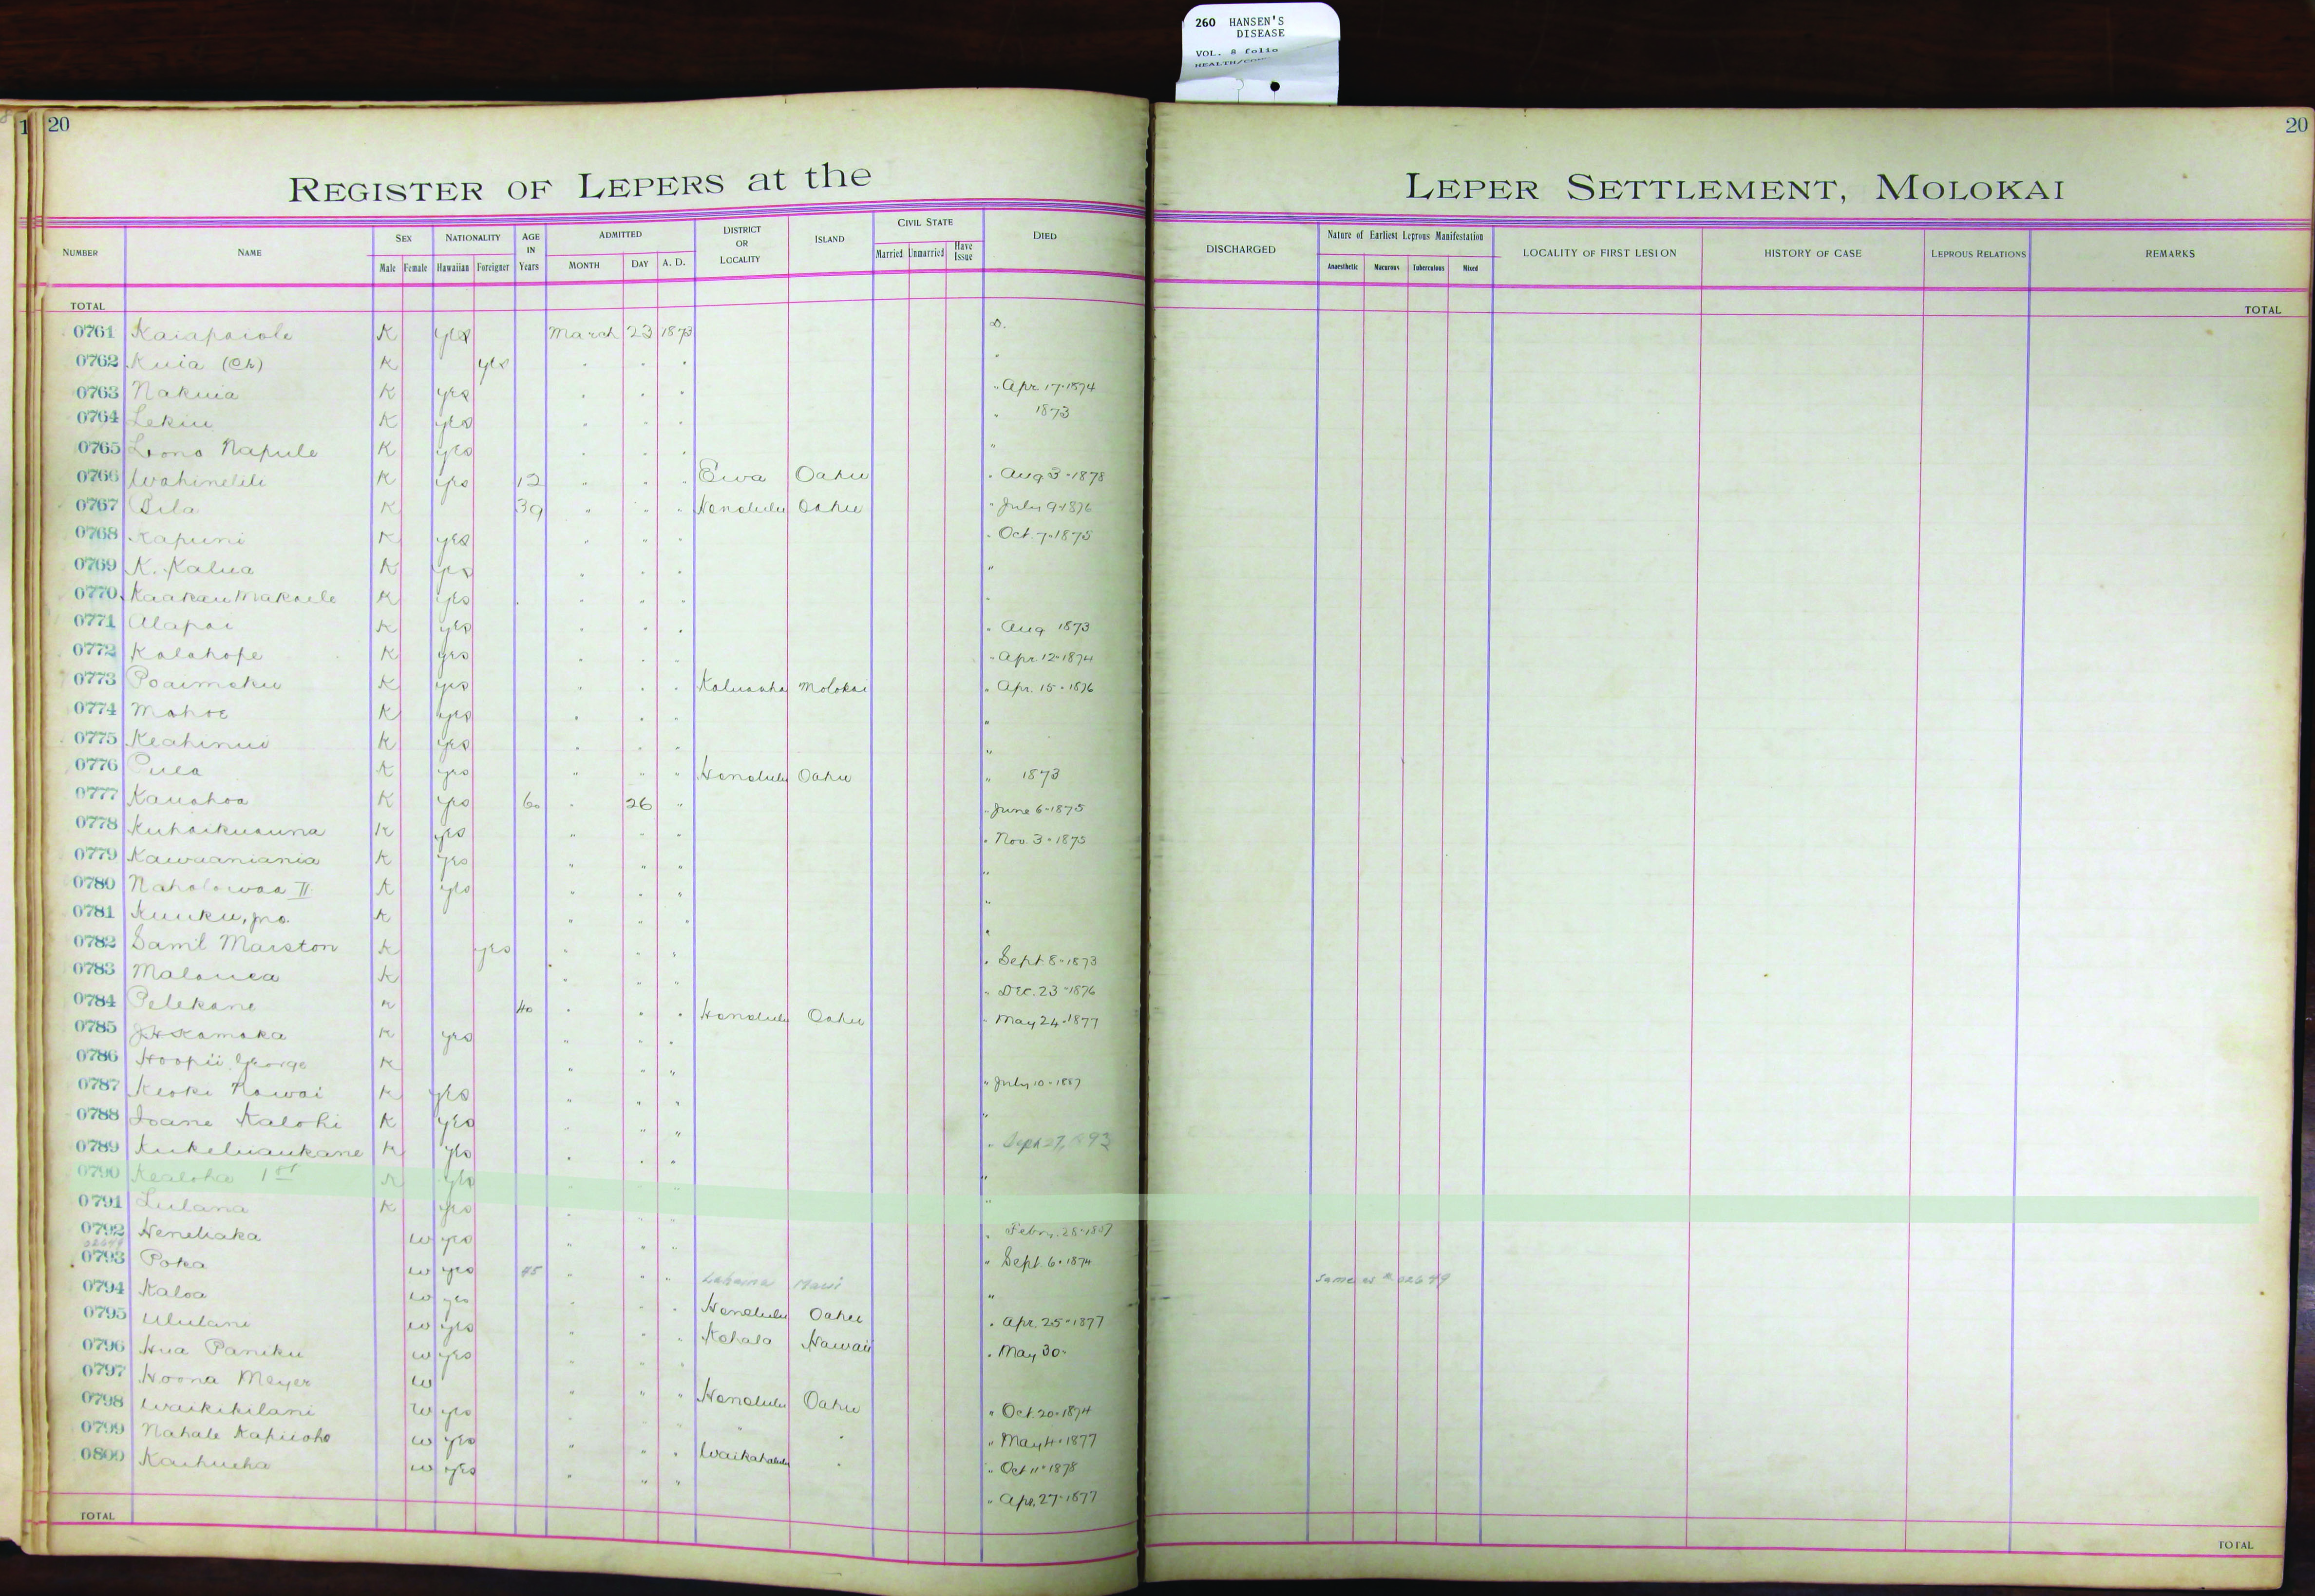 260 HANSEN'S
DISEASE
VOL. 8 folio
20
20
REGISTER OF LEPERS at the
LEPER SETTLEMENT, MOLOKAI
NUMBER NAME SEX NATIONALITY AGE IN Years ADMITTED DISTRICT OR LOCALITY ISLAND CIVIL STATE DIED
Male Female Hawaiian Foreigner MONTH DAY A. D. Married Unmarried Have Issue
DISCHARGED Nature of Earliest Leprous Manifestation LOCALITY OF FIRST LESION HISTORY OF CASE LEPROUS RELATIONS REMARKS
Anaesthetic Macurous Tuberculous Mixed
TOTAL TOTAL
0761 Kaiapaiole K yes March 23 1873 D.
0762 Kuia (Ch) K yes " " " "
0763 Nakuia K yes " " " " Apr. 17-1874
0764 Lekiu K yes " " " " 1873
0765 Lono Napule K yes " " " "
0766 Wahinelili K yes 12 " " " Ewa Oahu " Aug 3-1878
0767 Pila K 39 " " " Honolulu Oahu " July 9-1876
0768 Kapuni K yes " " " " Oct. 7-1875
0769 K. Kalua K yes " " " "
0770 Kaakau Makaele K yes " " " "
0771 Alapai K yes " " " " Aug 1873
0772 Kalahope K yes " " " " Apr. 12-1874
0773 Poaimoku K yes " " " Kaluaaha Molokai " Apr. 15-1876
0774 Mahoe K yes " " " "
0775 Keahinui K yes " " " "
0776 Puea K yes " " " Honolulu Oahu " 1873
0777 Kauahoa K yes 60 " 26 " " June 6-1875
0778 Kuhaikuauna K yes " " " " Nov. 3-1875
0779 Kawaaniania K yes " " " "
0780 Naholowaa II K yes " " " "
0781 Kuuku, jno. K " " " "
0782 Saml Marston K yes " " " " Sept 8-1873
0783 Malouea K " " " " Dec. 23-1876
0784 Pelekane K 40 " " " Honolulu Oahu " May 24-1877
0785 J.H. Kamaka K yes " " "
0786 Hoopii George K " " " " July 10-1887
0787 Keoki Nawai K yes " " " "
0788 Ioane Kalohi K yes " " " " Sept 27, 1893
0789 Kukeluaukane K yes " " " "
0790 Kealoha 1st K yes " " " "
0791 Lulana K yes " " " " Febr. 28-1887
0792 Heneliaka W yes " " " " Sept. 6-1874
02649
0793 Poka W yes 45 " " " Lahaina Maui " Same as # 02649
0794 Kaloa W yes " " " Honolulu Oahu " Apr. 25-1877
0795 Ululani W yes " " " Kohala Hawaii " May 30-
0796 Hua Paniku W yes " " "
0797 Hoona Meyer W " " " Honolulu Oahu " Oct. 20-1874
0798 Waikikilani W yes " " " " " May 4-1877
0799 Nahale Kapuoho W yes " " " Waikahalulu " " Oct 11-1878
0800 Kaihueha W yes " " " " Apr. 27-1877
TOTAL TOTAL